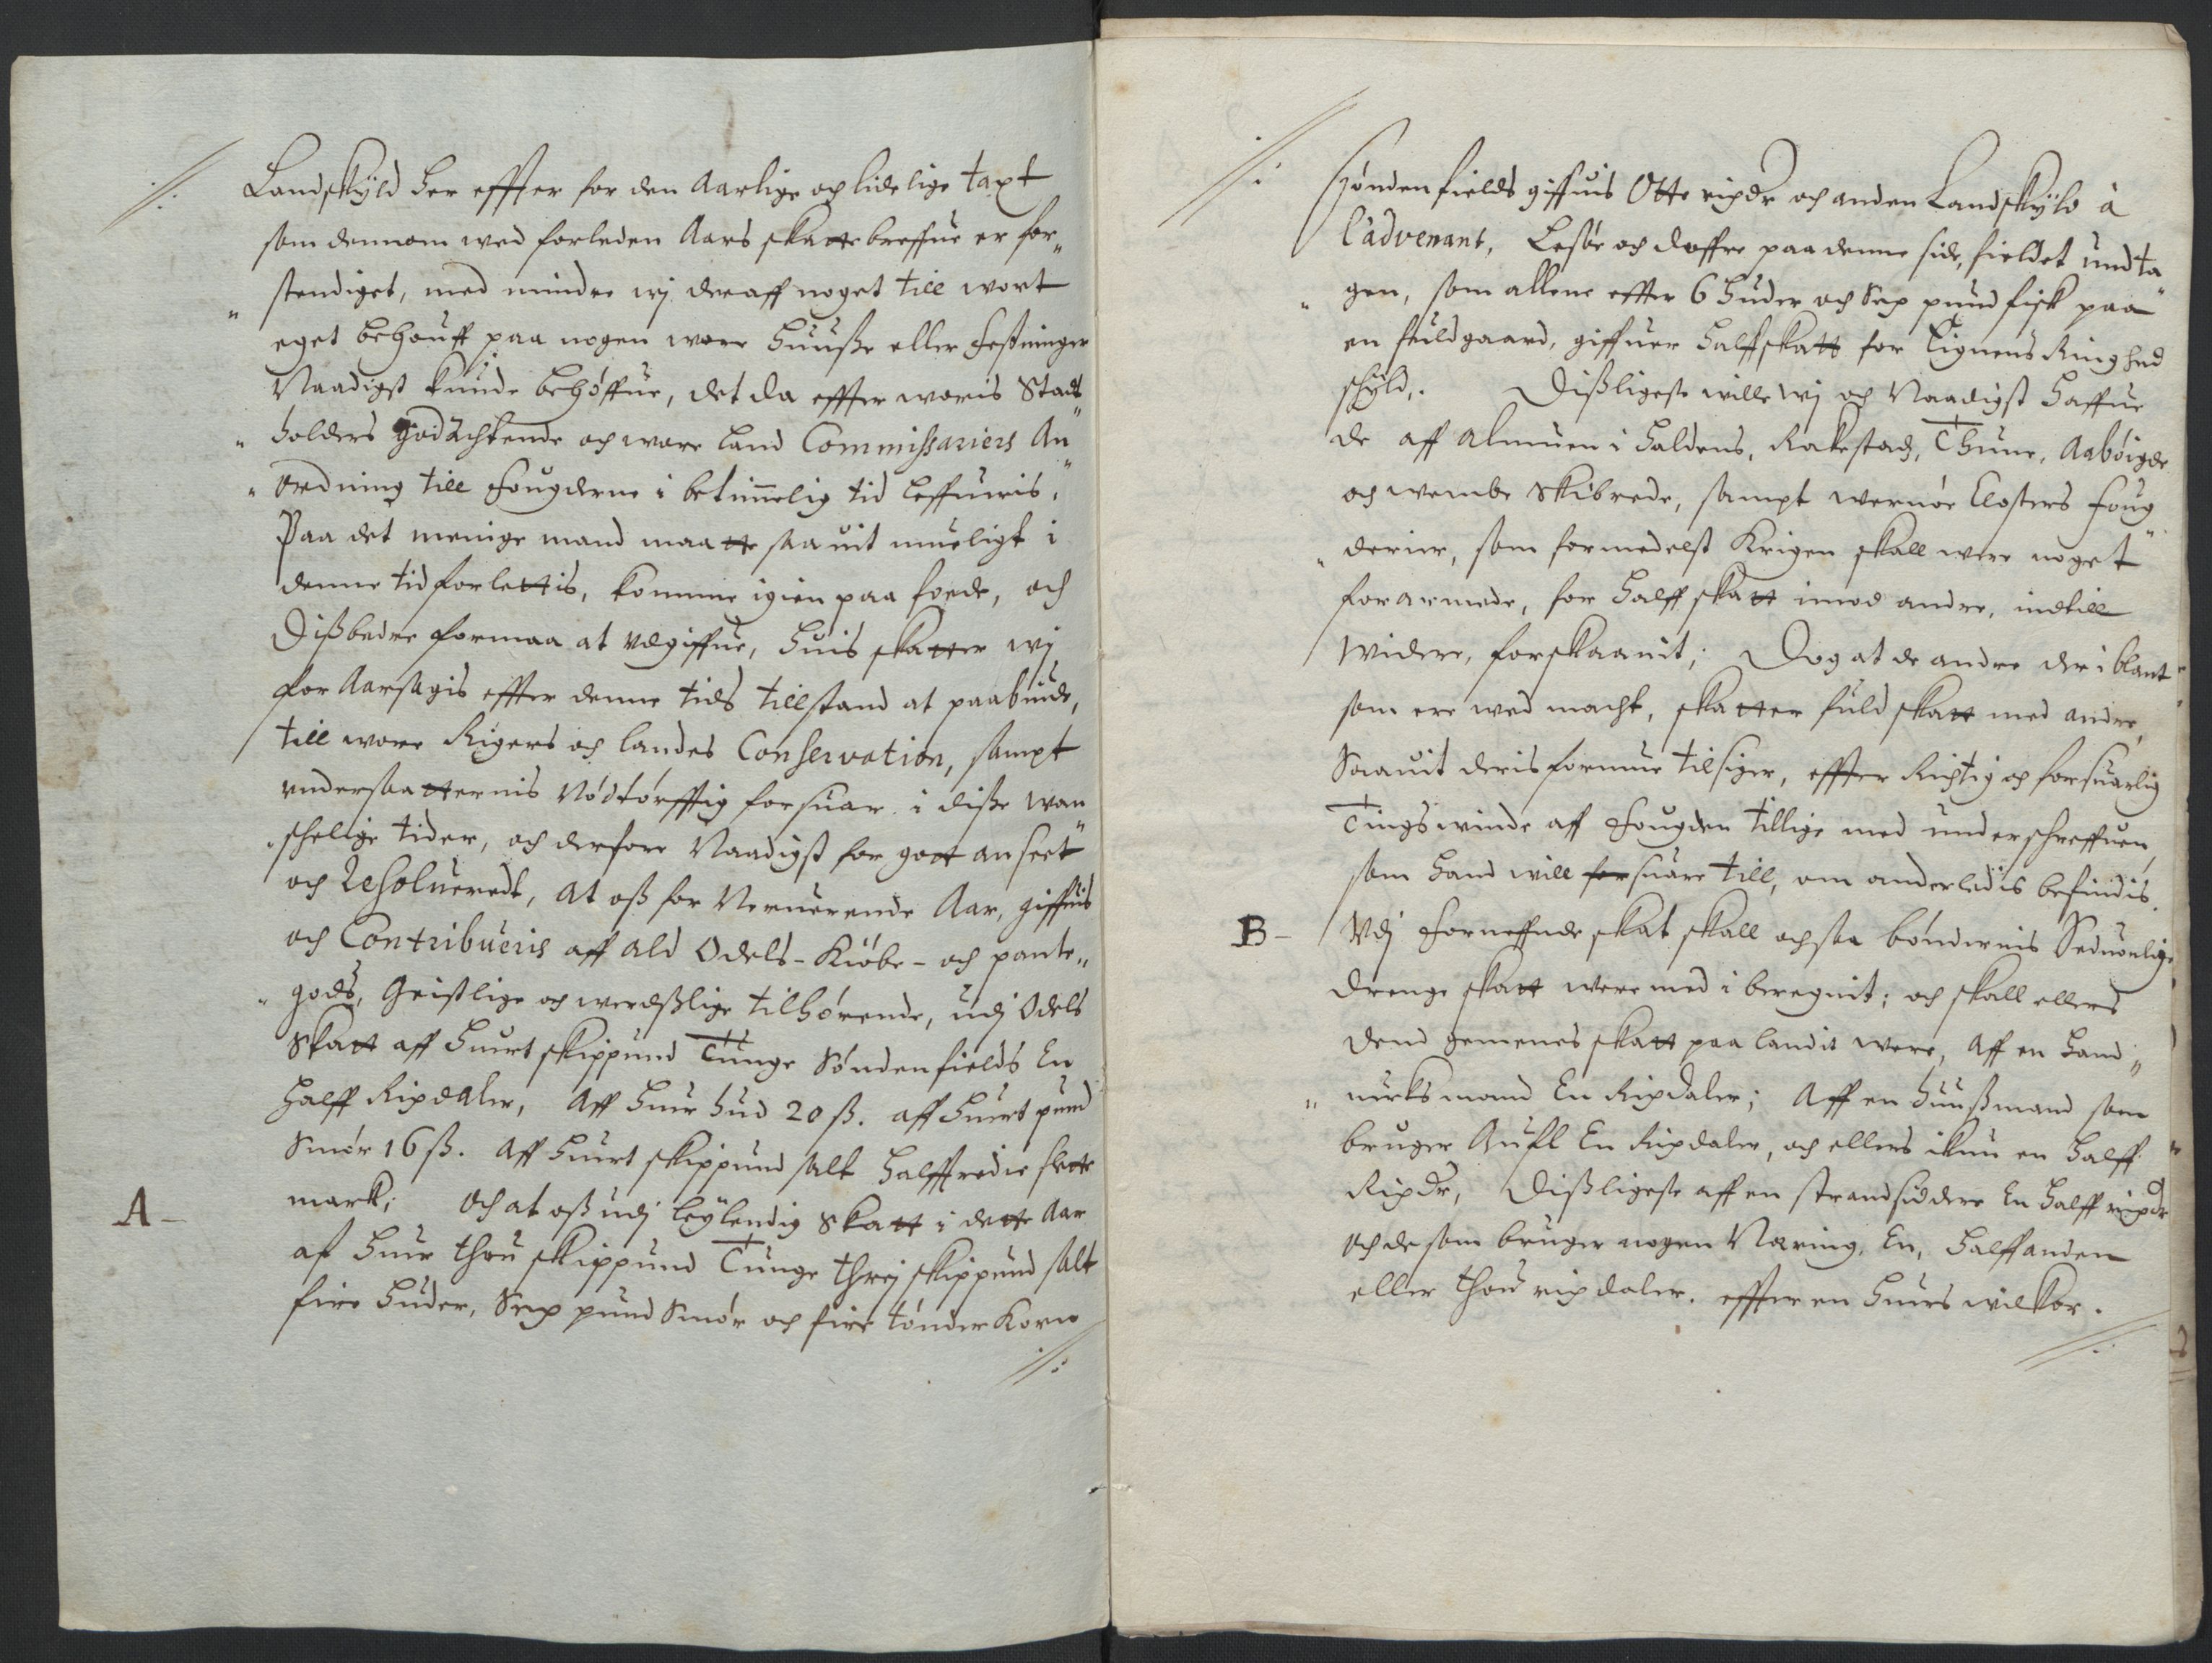 Landskyld her effter for den Aarlige och lidelige taxt
som dennom wed forleden Aars skattebreffue er for„
„stendiget, med mindre wj deraff noget till wort
eget behouff paa nogen wore Huuße eller Festninger
Naadigst kunde behøffue, det da effter woris Stadt„
„holders godächtende och wore land Commissariers An„
„ordning till Fougderne i betimmelig tid leffueris.
Paa det menige mand maatte saauit mueligt i
denne tid forlettis, komme igien paa foede, och
Dißbedre formaa at udgiffue, huis skatter wj
for Aarsagis effter denne tids tillstand at paabiude,
till wore Rigers och landes Conservation, sampt
undersaatternis Nødtørfftig forsuar i diße wan„
„schelige tider, och derfore Naadigst for gott anseet
och Resolueredt, at oß for Neruerende Aar, giffuis
och Contribueris aff ald Odels- Kiøbe- och pante„
„gods, Geistlige och werdßlige tilhørende, udj Odels
Skatt aff huert skippund Tunge Søndenfields En
halff Rixdaler, Aff huer hud 20 ß. aff huert pund
Smør 16 ß. Aff huert skippund salt halfftredie slette
mark; Och at oß udj leylending Skatt i dette Aar
A- af huer thou skippund Tunge threj skippund salt
fire huder, Sex pund Smør och fire tønder Korn
//.
//. Søndenfields giffuis Otte rixdr och anden Landskyld à
l'advenant, Lesøe och doffre paa denne side, fieldet undta„
„gen, som allene effter 6 huder och Sex pund fisk paa
en fuldgaard, giffuer halffskatt for Eignens Ringhed
schyld. Dißligeste wille wj och Naadigst haffue
de aff almuen i haldens, Rakestad, Thune, Aabøigde
och wembe skibrede, sampt wernøe Closters foug„
„derier, som formedelst Krigen skall were noget
forarmede, for halff skatt imod andre, indtill
widere, forskaanit; Dog at de andre der i blant
som ere wed macht, skatter fuld skatt med andre,
Saauit deris formue tilsiger, effter Richtig och forsuarlig
Tingswinde aff Fougden tillige med underschreffuen,
som hand will forsuare till, om anderledis befindis.
B- Udj Forneffnde skat skall ochsaa bønderis Seduonlige
drenge skatt were med i beregnit; och skall ellers
dend gemenes skatt paa landit were, Aff en hand„
„uerksmand En Rixdaler; Aff en huußmand som
bruger Aufl En Rixdaler, och ellers ikun en halff
Rixdr, Dißligeste aff en strandsiddere En halff rixdr
och de som bruger nogen Næring, En, halffanden
eller thou rixdaler. effter en huers wilkor.
//.